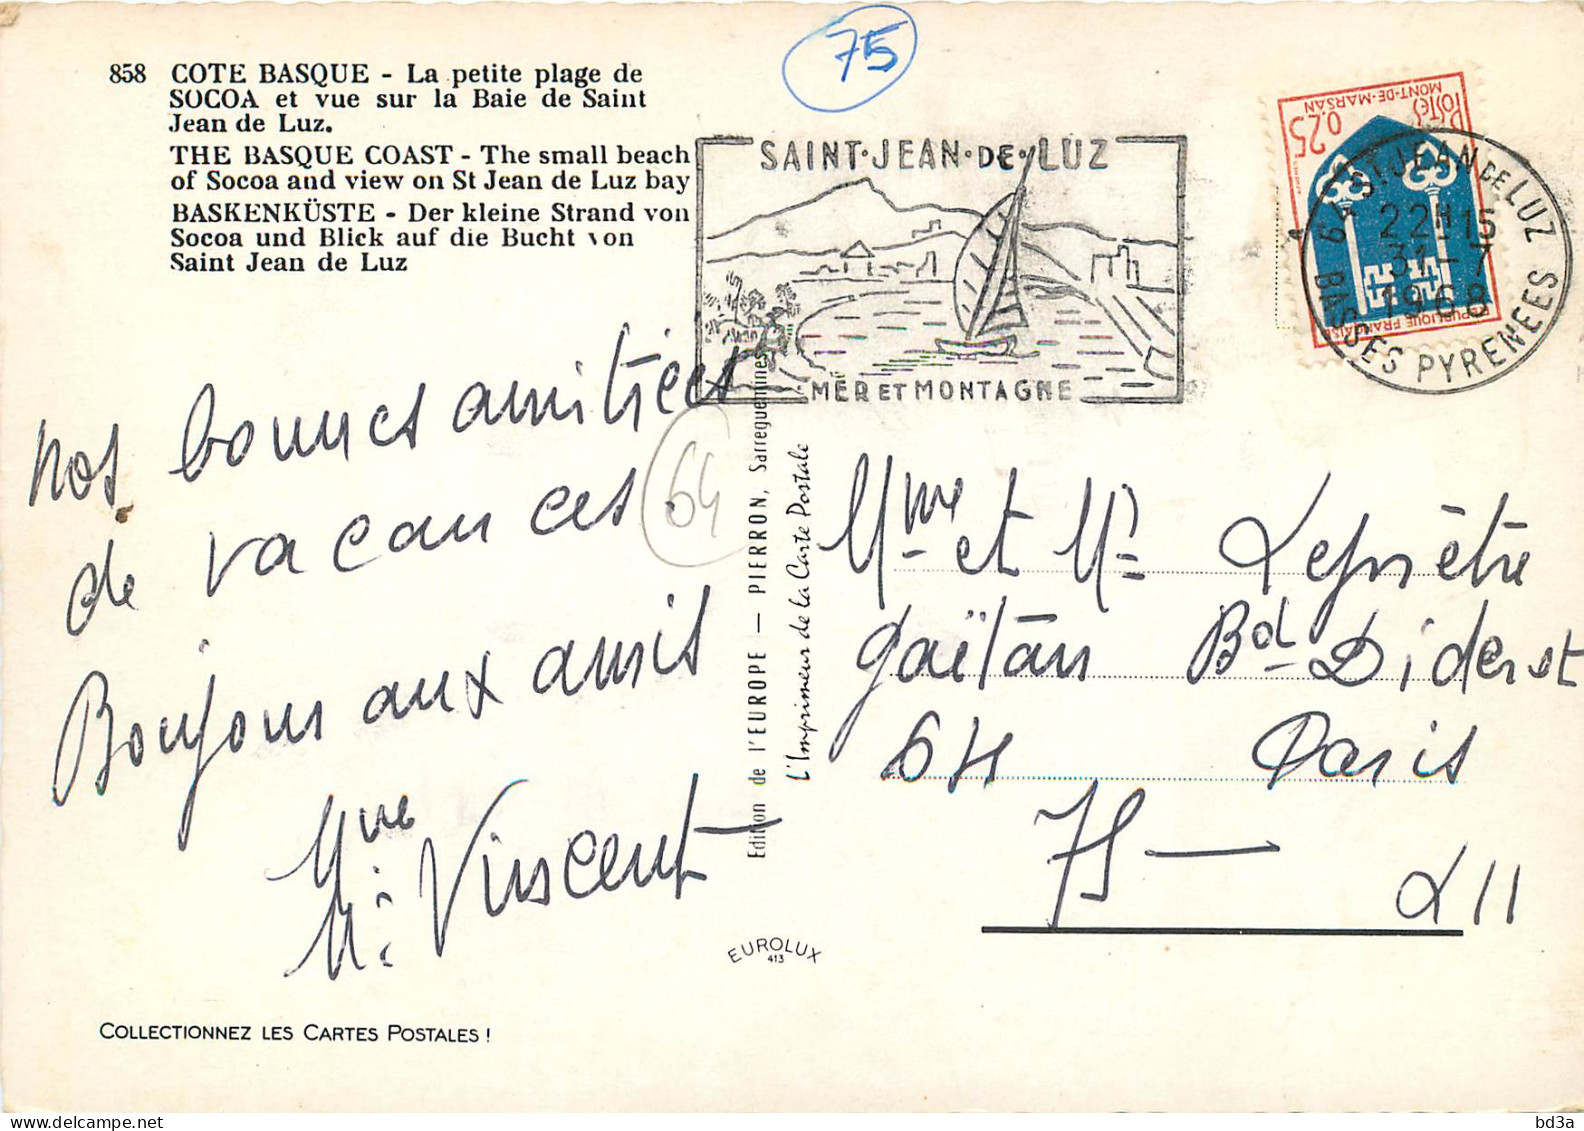 75
858 COTE BASQUE - La petite plage de
SOCOA et vue sur la Baie de Saint
Jean de Luz.
THE BASQUE COAST - The small beach
of Socoa and view on St Jean de Luz bay
BASKENKÜSTE - Der kleine Strand von
Socoa und Blick auf die Bucht von
Saint Jean de Luz
SAINT·JEAN·DE·LUZ
MER ET MONTAGNE
POSTES
MONT-DE-MARSAN
0.25
REPUBLIQUE FRANCAISE
64 ST JEAN DE LUZ
22H15
31-7
1968
BASSES PYRENEES
Nos bonnes amitiées
de vacances.
Bonjour aux amis
Mme
Mr Vincent
64
Edition de l'EUROPE — PIERRON, Sarreguemines
L'Imprimeur de la Carte Postale
Mme et Mr Leprêtre
Gaëtan Bd Diderot
64 Paris
75 — XII
EUROLUX
413
COLLECTIONNEZ LES CARTES POSTALES !
delcampe.net
bd3a